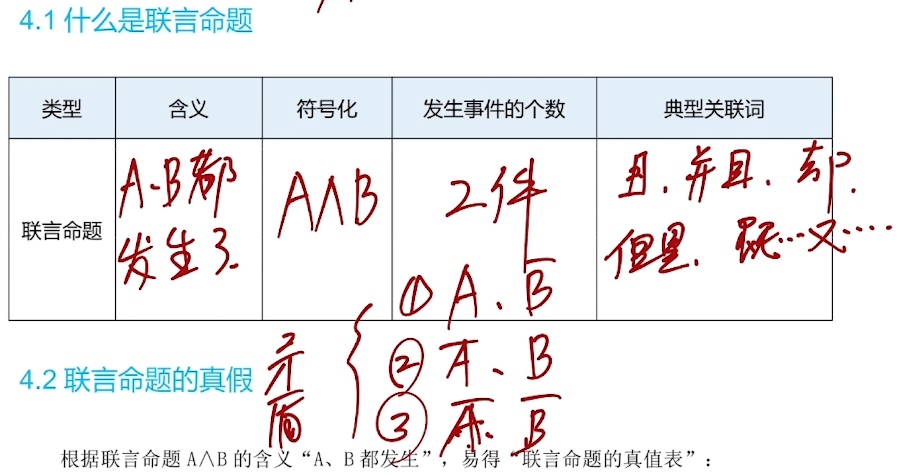 4.1 什么是联言命题
类型 含义 符号化 发生事件的个数 典型关联词
联言命题 A、B都发生了 A∧B 2件 且、并且、却、但是、既…又…
矛盾 ① A、B̅
② A̅、B
③ A̅、B̅
4.2 联言命题的真假
根据联言命题 A∧B 的含义“A、B 都发生”，易得“联言命题的真值表”：